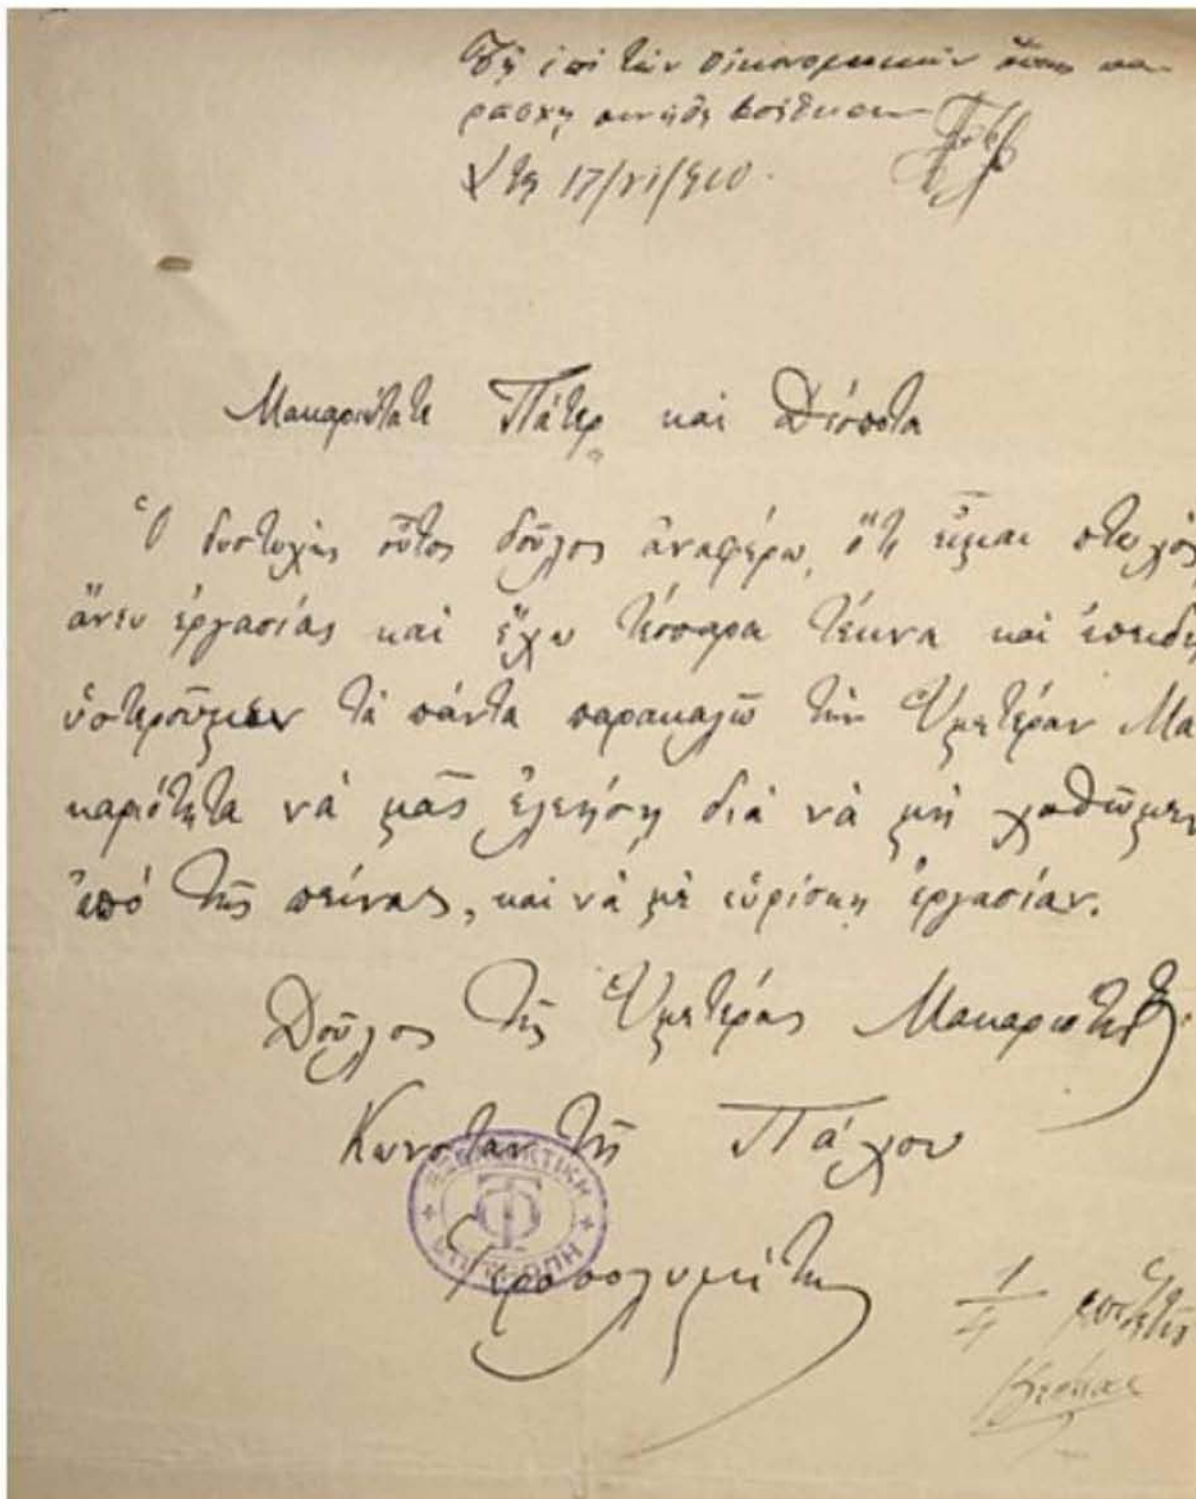 Τῇ ἐπὶ τῶν Οἰκονομικῶν ὅπως πα-
ράσχῃ βοήθειαν
τῇ 17/VI/910.
Μακαριώτατε Πάτερ καὶ Δέσποτα
Ὁ δυστυχὴς οὗτος δοῦλος ἀναφέρω, ὅτι εἶμαι πτωχός
ἄνευ ἐργασίας καὶ ἔχω τέσσαρα τέκνα καὶ ἐπειδὴ
ὑστεροῦμεν τὰ πάντα παρακαλῶ τὴν Ὑμετέραν Μα
καριότητα νὰ μᾶς ἐλεήσῃ διὰ νὰ μὴ χαθῶμεν
ἀπὸ τῆς πείνας, καὶ νὰ μὲ εὑρίσκῃ ἐργασίαν.
Δοῦλος τῆς Ὑμετέρας Μακαριότητος.
Κωνσταντῆ Πάχου
ΕΞΕΛΕΓΚΤΙΚΗ ΕΠΙΤΡΟΠΗ
ΤΦ
Ἱεροσολυμίτης
1/4